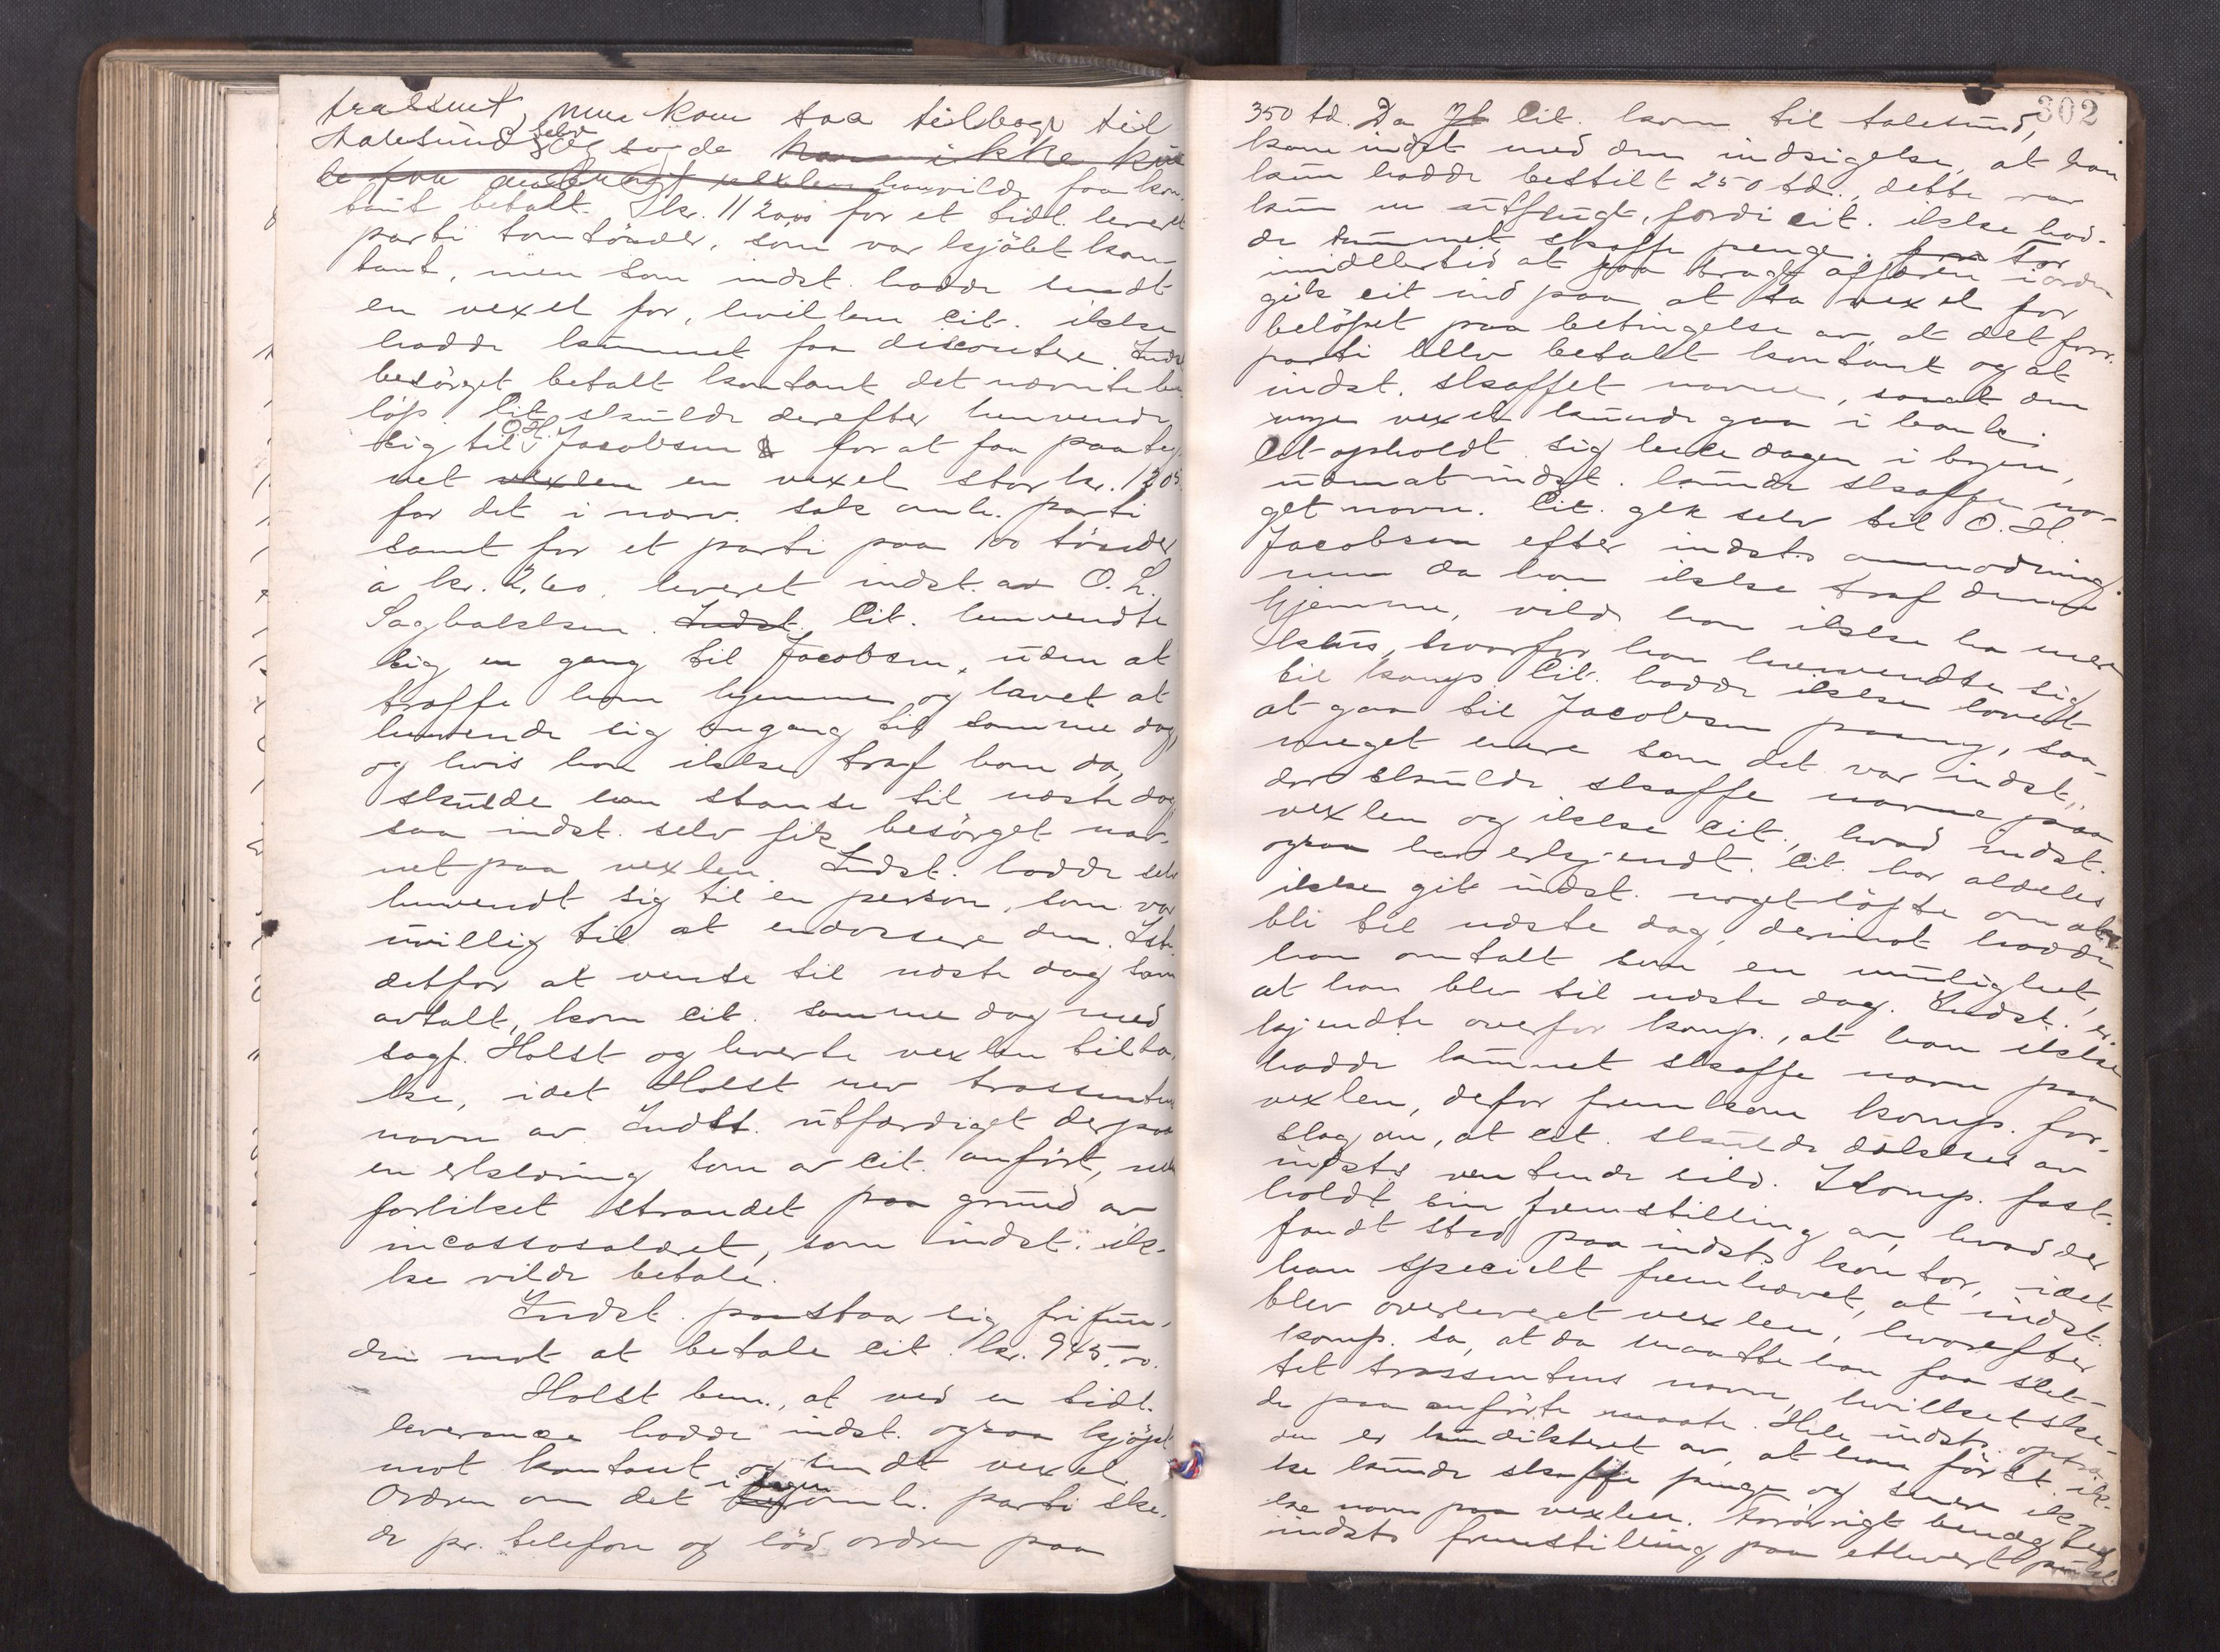 men kom saa tilbage til
Aalesund selv og sa da han ikke kun
de faa vexlen han vilde faa kon-
tant betalt. kr. 1120,00 for et tidl. leveret
parti tomtönder, som var kjöbt kon-
tant, men som indst. hadde sendt
en vexel for, hvilken cit. ikke
hadde kunnet faa discontere. Indst.
besörget betalt kontant det nævnte be-
löp. Cit. skulde derefter henvende
sig til O. H. Jacobsen for at faa paateg-
net vexlen en vexel stor kr. 1205
for det i nærv. sak omh. parti
samt for et parti paa 100 tönder
à kr. 2,60, leveret indst. av O. L.
Sagbakken. Indst. Cit. henvendte
sig en gang til Jacobsen, uden at
træffe ham hjemme og lovet at
henvende sig engang til samme dag,
og hvis han ikke traf ham da,
skulde han stanse til næste dag
saa indst. selv fik besörget nav-
net paa vexlen. Indst. hadde selv
henvendt sig til en person, som var
uvillig til at endossere den. Ist.
detfor at vente til næste dag som
avtalt, kom cit. samme dag med
sagf. Holst og leverte vexlen tilba-
ke, idet Holst rev trassentens
navn av. Indst. utfærdiget derpaa
en erklæring som av cit. anfört, men
forliket strandet paa grund av
incassosalæret, som indst. ik-
ke vilde betale.
Indst. paastaar sig frifun-
den mot at betale cit. kr. 945,00.
Holst bem., at ved en tidl.
leverance hadde indst. ogsaa kjöpt
mot kontant og sendt vexel.
Ordren om det i sagen omh. parti ske-
de pr. telefon og löd ordren paa
302
350 td. Da cit. kom til Aalesund,
kom indst. med den indsigelse, at han
kun hadde bestilt 250 td., dette var
kun en utflugt, fordi cit. ikke had-
de kunnet skaffe penge. for For
imidlertid at faa bragt affæren i orden
gik cit. ind paa at ta vexel for
belöpet paa betingelse av, at det forr.
parti blev betalt kontant og at
indst. skaffet navne, saa at den
nye vexel kunde gaa i bank.
Cit. opholdt sig hele dagen i byen,
uden at indst. kunde skaffe no-
get navn. Cit. gik selv til O. H.
Jacobsen efter indst.s anmodning,
men da han ikke traf denne
hjemme, vilde han ikke ha mer
kluss, hvorfor han henvendte sig
til komp. Cit. hadde ikke lovet
at gaa til Jacobsen paany, saa-
meget mere som det var indst.,
der skulde skaffe navne paa
vexlen og ikke cit., hvad indst.
ogsaa har erkjendt. Cit. har aldeles
ikke git indst. noget löfte om at
bli til næste dag, derimot hadde
han omtalt som en mulighet,
at han blev til næste dag. Indst. er-
kjendte overfor komp., at han ikke
hadde kunnet skaffe navn paa
vexlen, defor fremkom komp. for-
slag om, at cit. skulde dækkes av
indsts ventende sild. Komp. fast-
holdt sin fremstilling av, hvad der
fandt sted paa indsts kontor, idet
han specielt fremhævet, at indst.
blev overleveret vexlen, hvorefter
komp. sa, at da maatte han faa slet-
tet trassentens navn, hvilket ske-
de paa anförte maate. Hele indsts optræ-
den er kun dikteret av, at han först ik-
ke kunde skaffe penge og senere ik-
ke navn paa vexlen. Forövrigt benægtes
indsts fremstilling paa ethvert punkt.